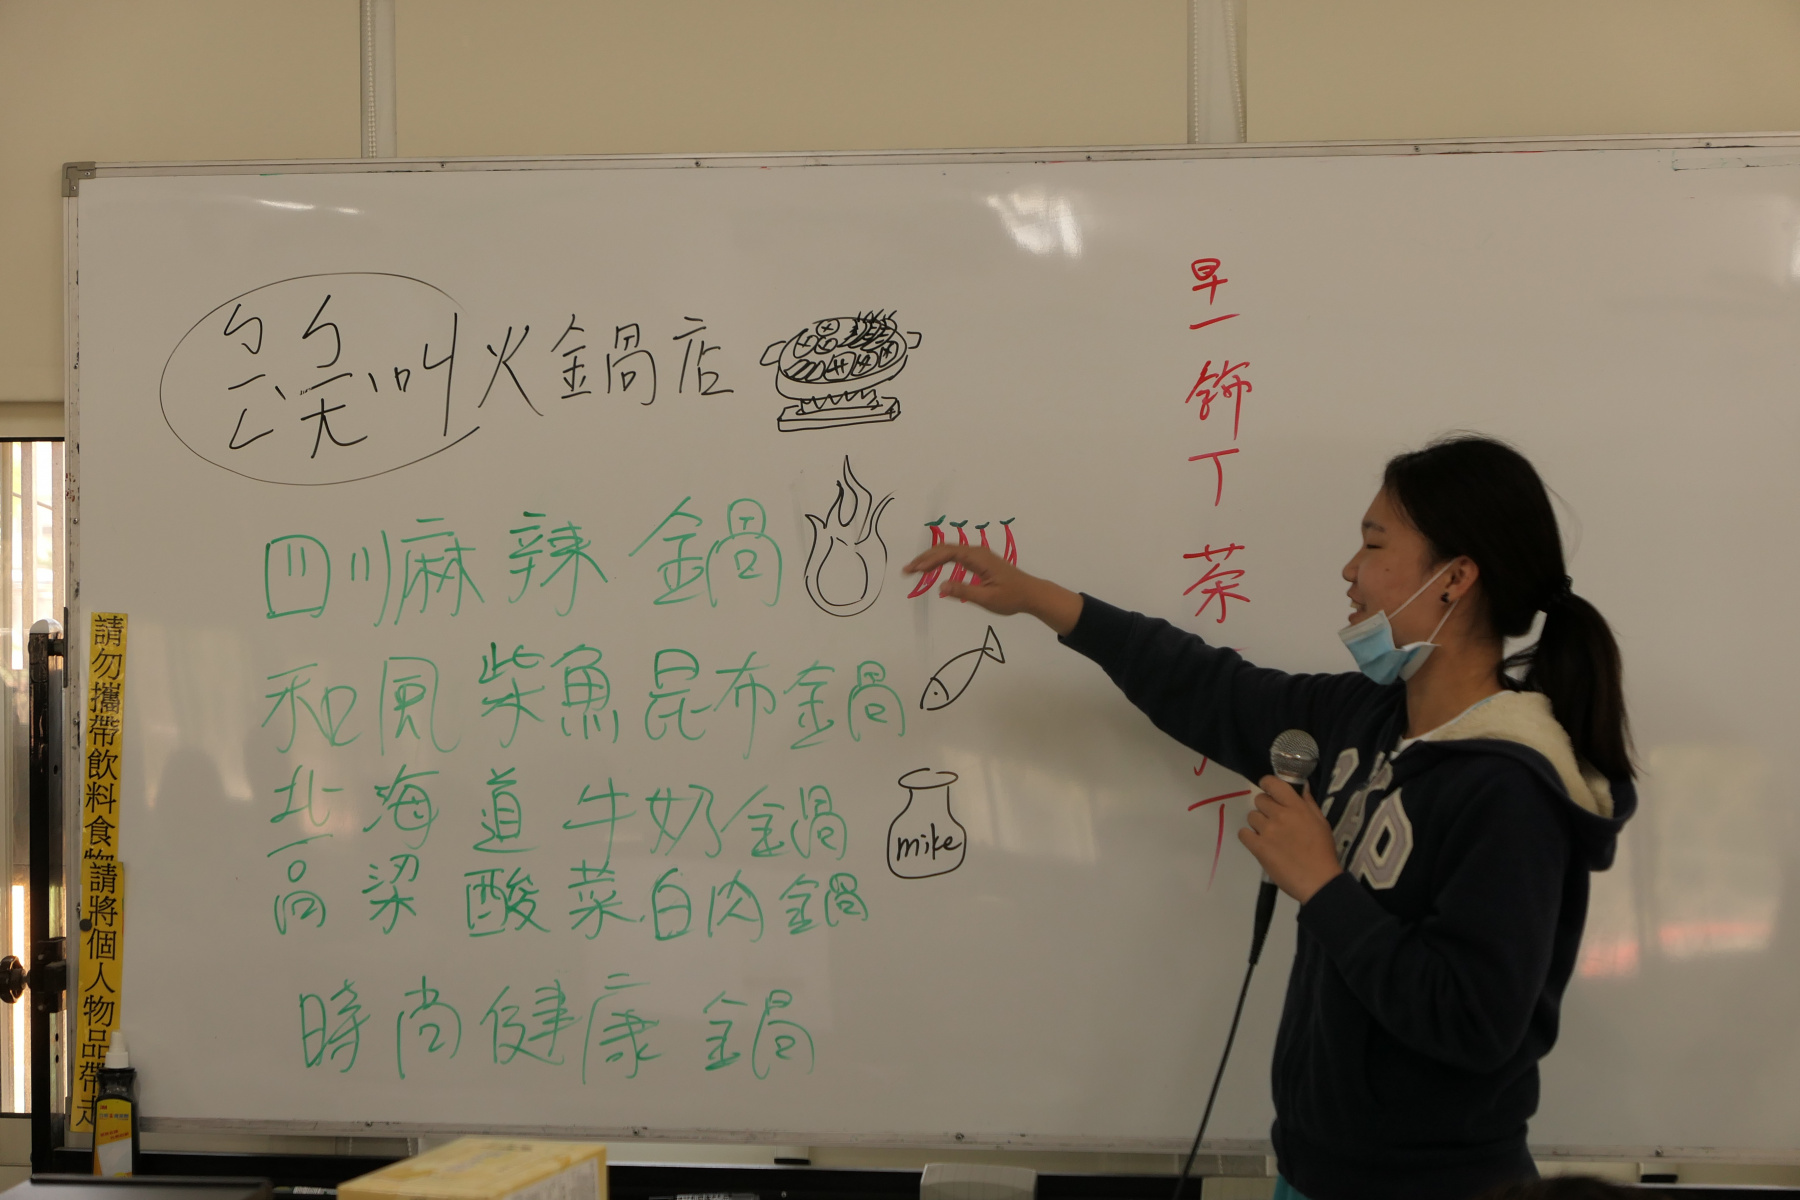 ㄅㄧㄥˋㄅㄧㄤˋ叫火鍋店
四川麻辣鍋
和風柴魚昆布鍋
北海道牛奶鍋
mike
高粱酸菜白肉鍋
時尚健康鍋
早
一
飾
丁
茶
丁
請勿攜帶飲料食物
請將個人物品帶走